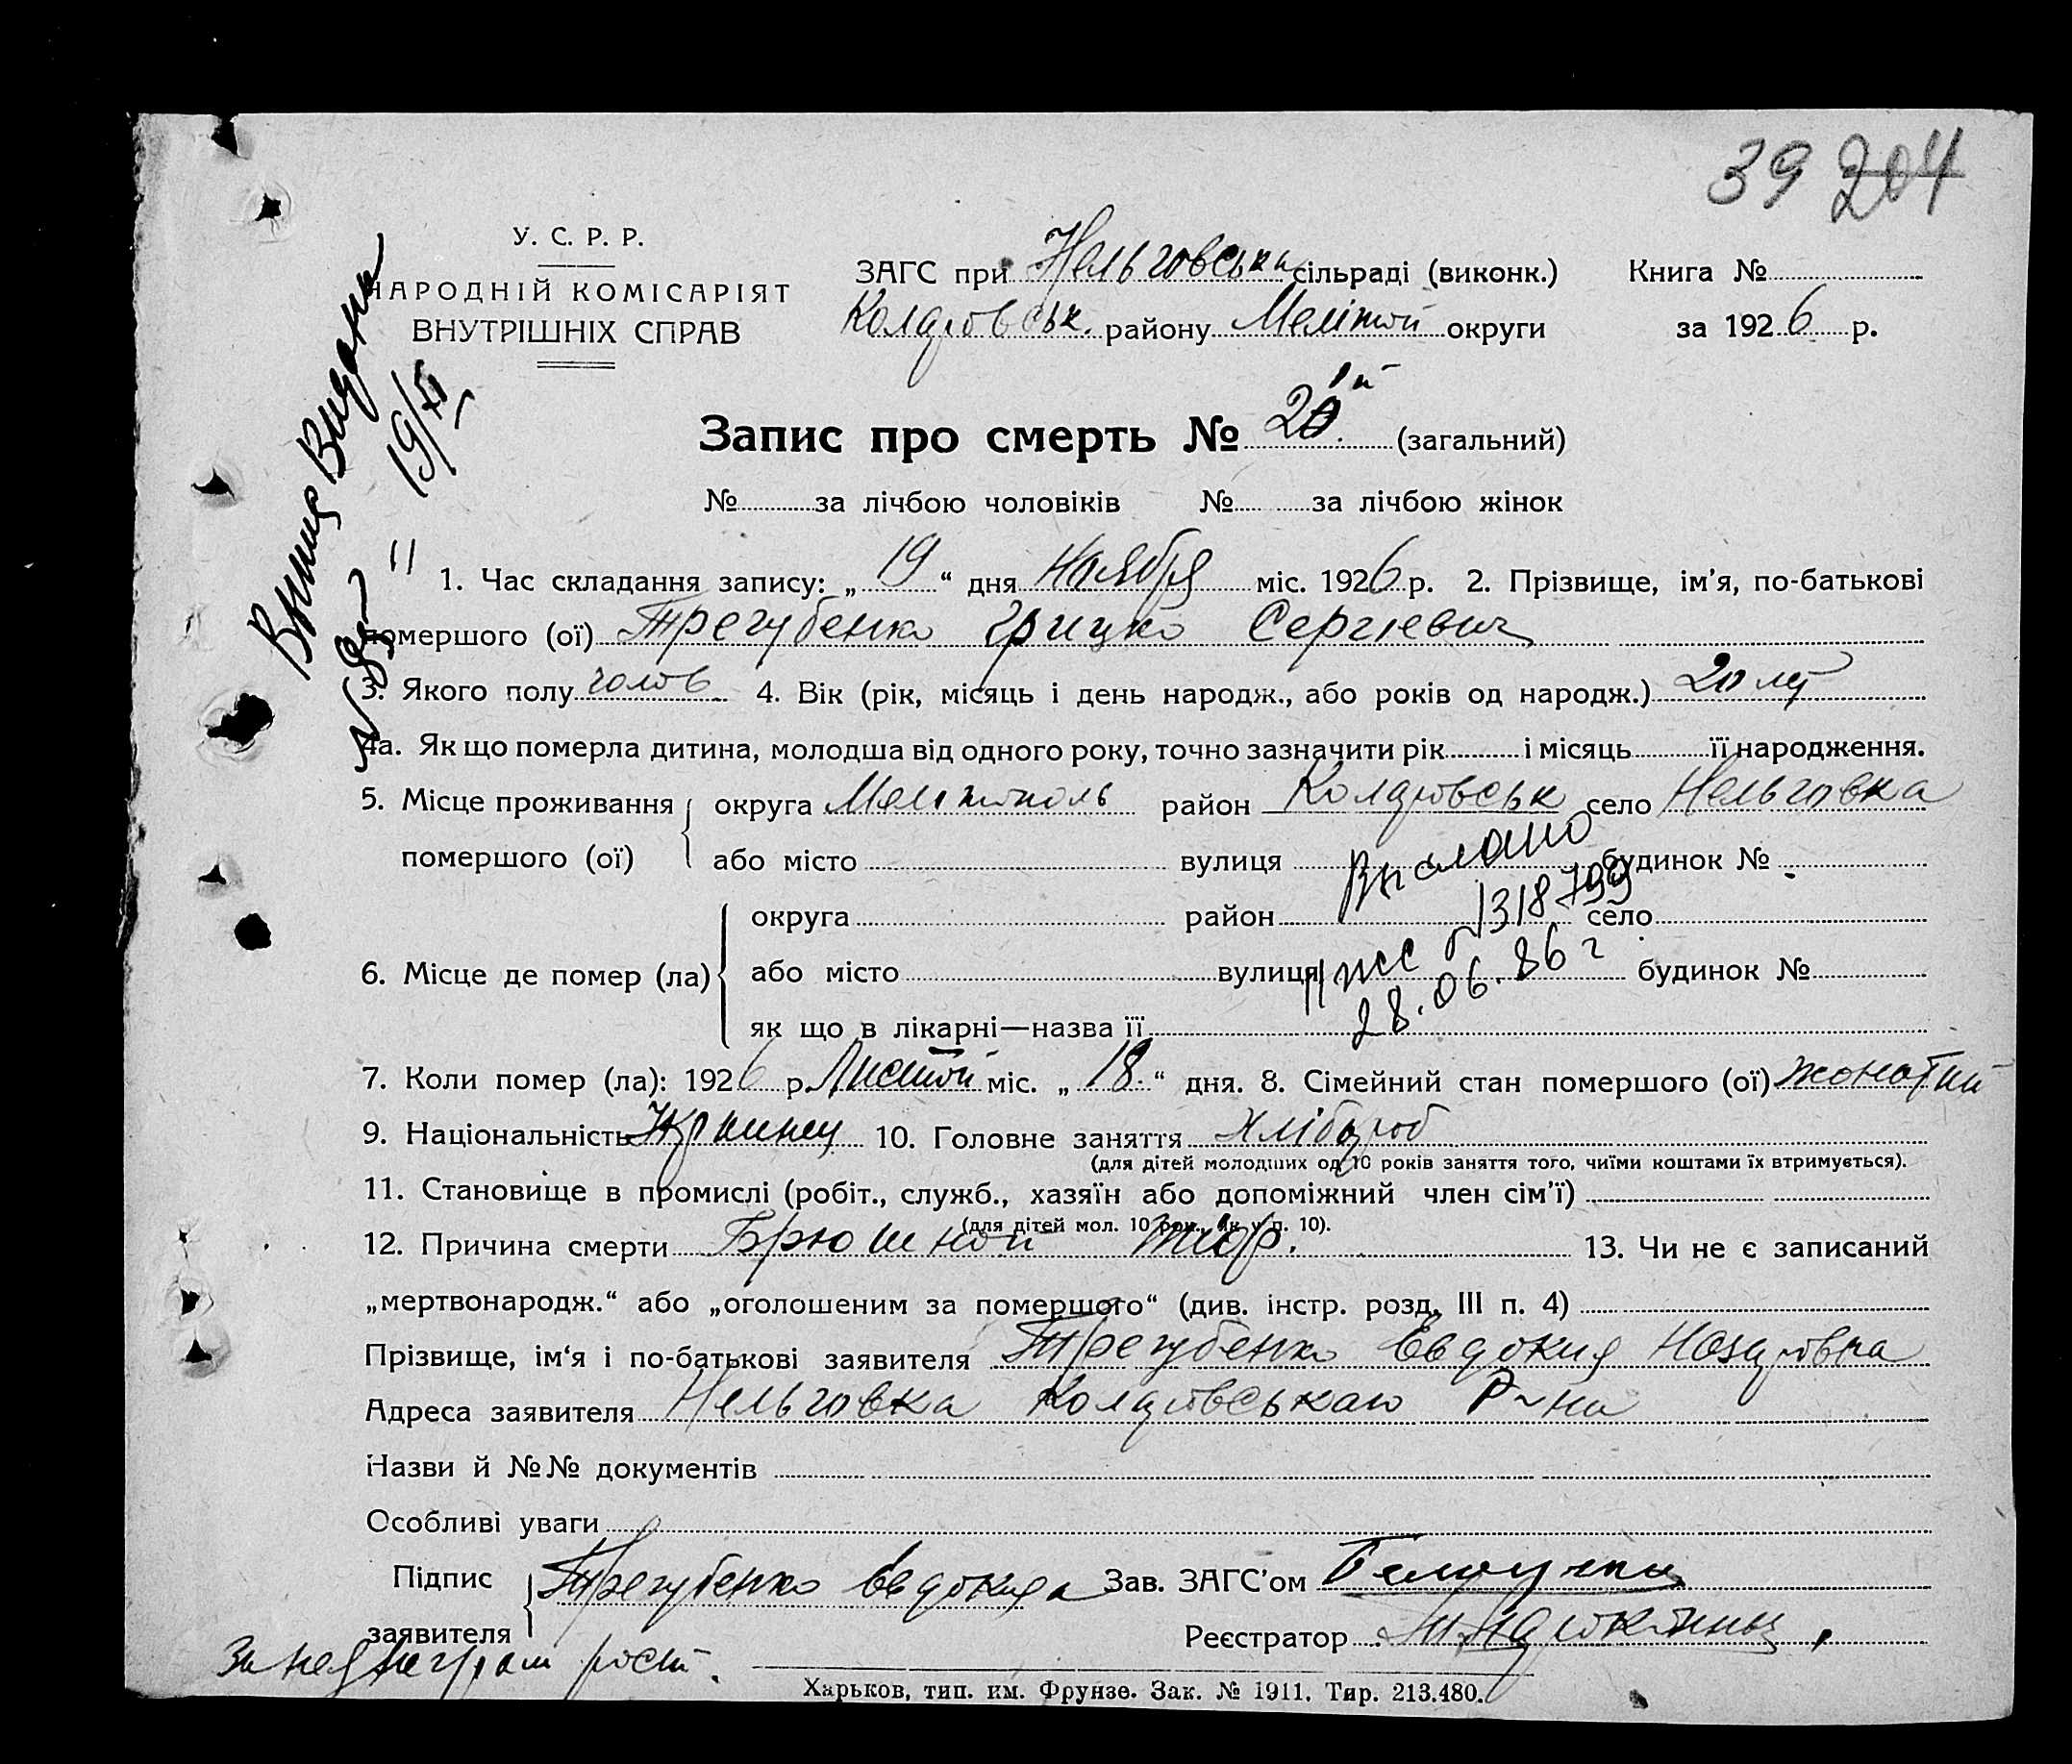 39 204
У. С. Р. Р.
НАРОДНІЙ КОМІСАРІЯТ
ВНУТРІШНІХ СПРАВ
ЗАГС при Нельговська сільраді (виконк.) Книга №
Коларовськ. району Меліпой округи за 1926 р.
Выпис Видани
19/XI
Запис про смерть № (загальний)
№ за лічбою чоловіків № за лічбою жінок
1. Час складання запису: „ 19 “ дня Ноября міс. 1926 р. 2. Прізвище, ім’я, по-батькові
помершого (ої) Трегубенко Грицко Сергіевич
3. Якого полу чолов 4. Вік (рік, місяць і день народж., або років од народж.) 20 лет
4а. Як що померла дитина, молодша від одного року, точно зазначити рік і місяць її народження.
5. Місце проживання округа Мелитополь район Коларовськ село Нельговка
помершого (ої) або місто вулиця будинок №
Выслано
1318799
округа район село
6. Місце де помер (ла) або місто вулиця будинок №
28.06.86 г
як що в лікарні—назва її
7. Коли помер (ла): 1926 р. Листой міс. „ 18. “ дня. 8. Сімейний стан помершого (ої) жонатий
9. Національність 10. Головне заняття Хлібороб
(для дітей молодших од 10 років заняття того, чиїми коштами їх втримується).
11. Становище в промислі (робіт., служб., хазяїн або допоміжний член сім’ї)
(для дітей мол. 10 рок., як у п. 10).
12. Причина смерти Брюшной тиф. 13. Чи не є записаний
„мертвонародж.“ або „оголошеним за помершого“ (див. інстр. розд. III п. 4)
Прізвище, ім‘я і по-батькові заявителя Трегубенко Евдокия Назаровна
Адреса заявителя Нельговка Коларовськаго Р-на
Назви й №№ документів
Особливі уваги
Підпис заявителя Трегубенко Евдокия а Зав. ЗАГС’ом
Реєстратор
Харьков, тип. им. Фрунзе. Зак. № 1911. Тир. 213.480.